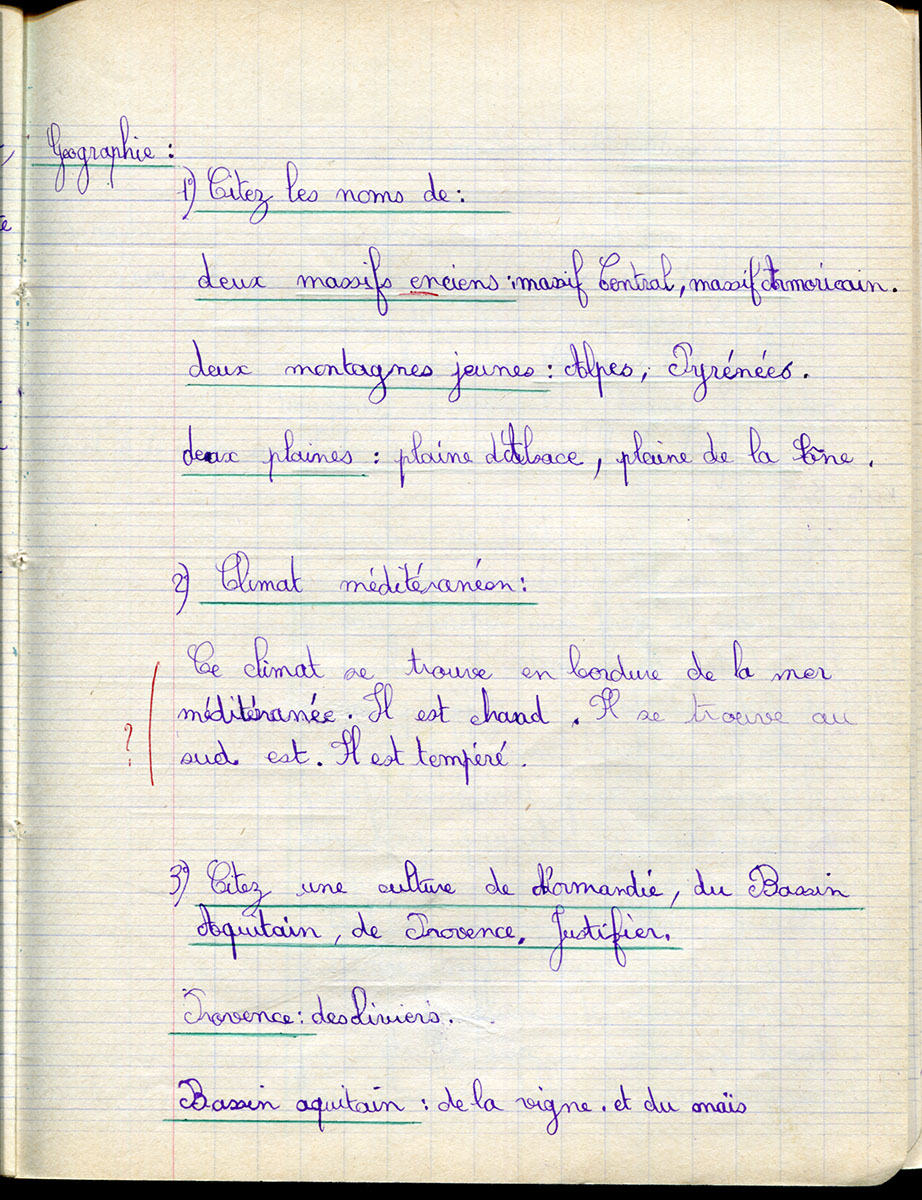 Geographie :
1) Citez les noms de :
deux massifs enciens : massif Central, massif Armoricain.
deux montagnes jeunes : Alpes, Pyrénées.
deux plaines : plaine d'Alsace, plaine de la Sône.
2) Climat méditéranéen :
Ce climat se trouve en bordure de la mer
méditéranée. Il est chaud. Il se trouve au
?
sud est. Il est tempéré.
3) Citez une culture de Normandie, du Bassin
Aquitain, de Provence. Justifier.
Provence : des liviers.
Bassin aquitain : de la vigne. et du maïs